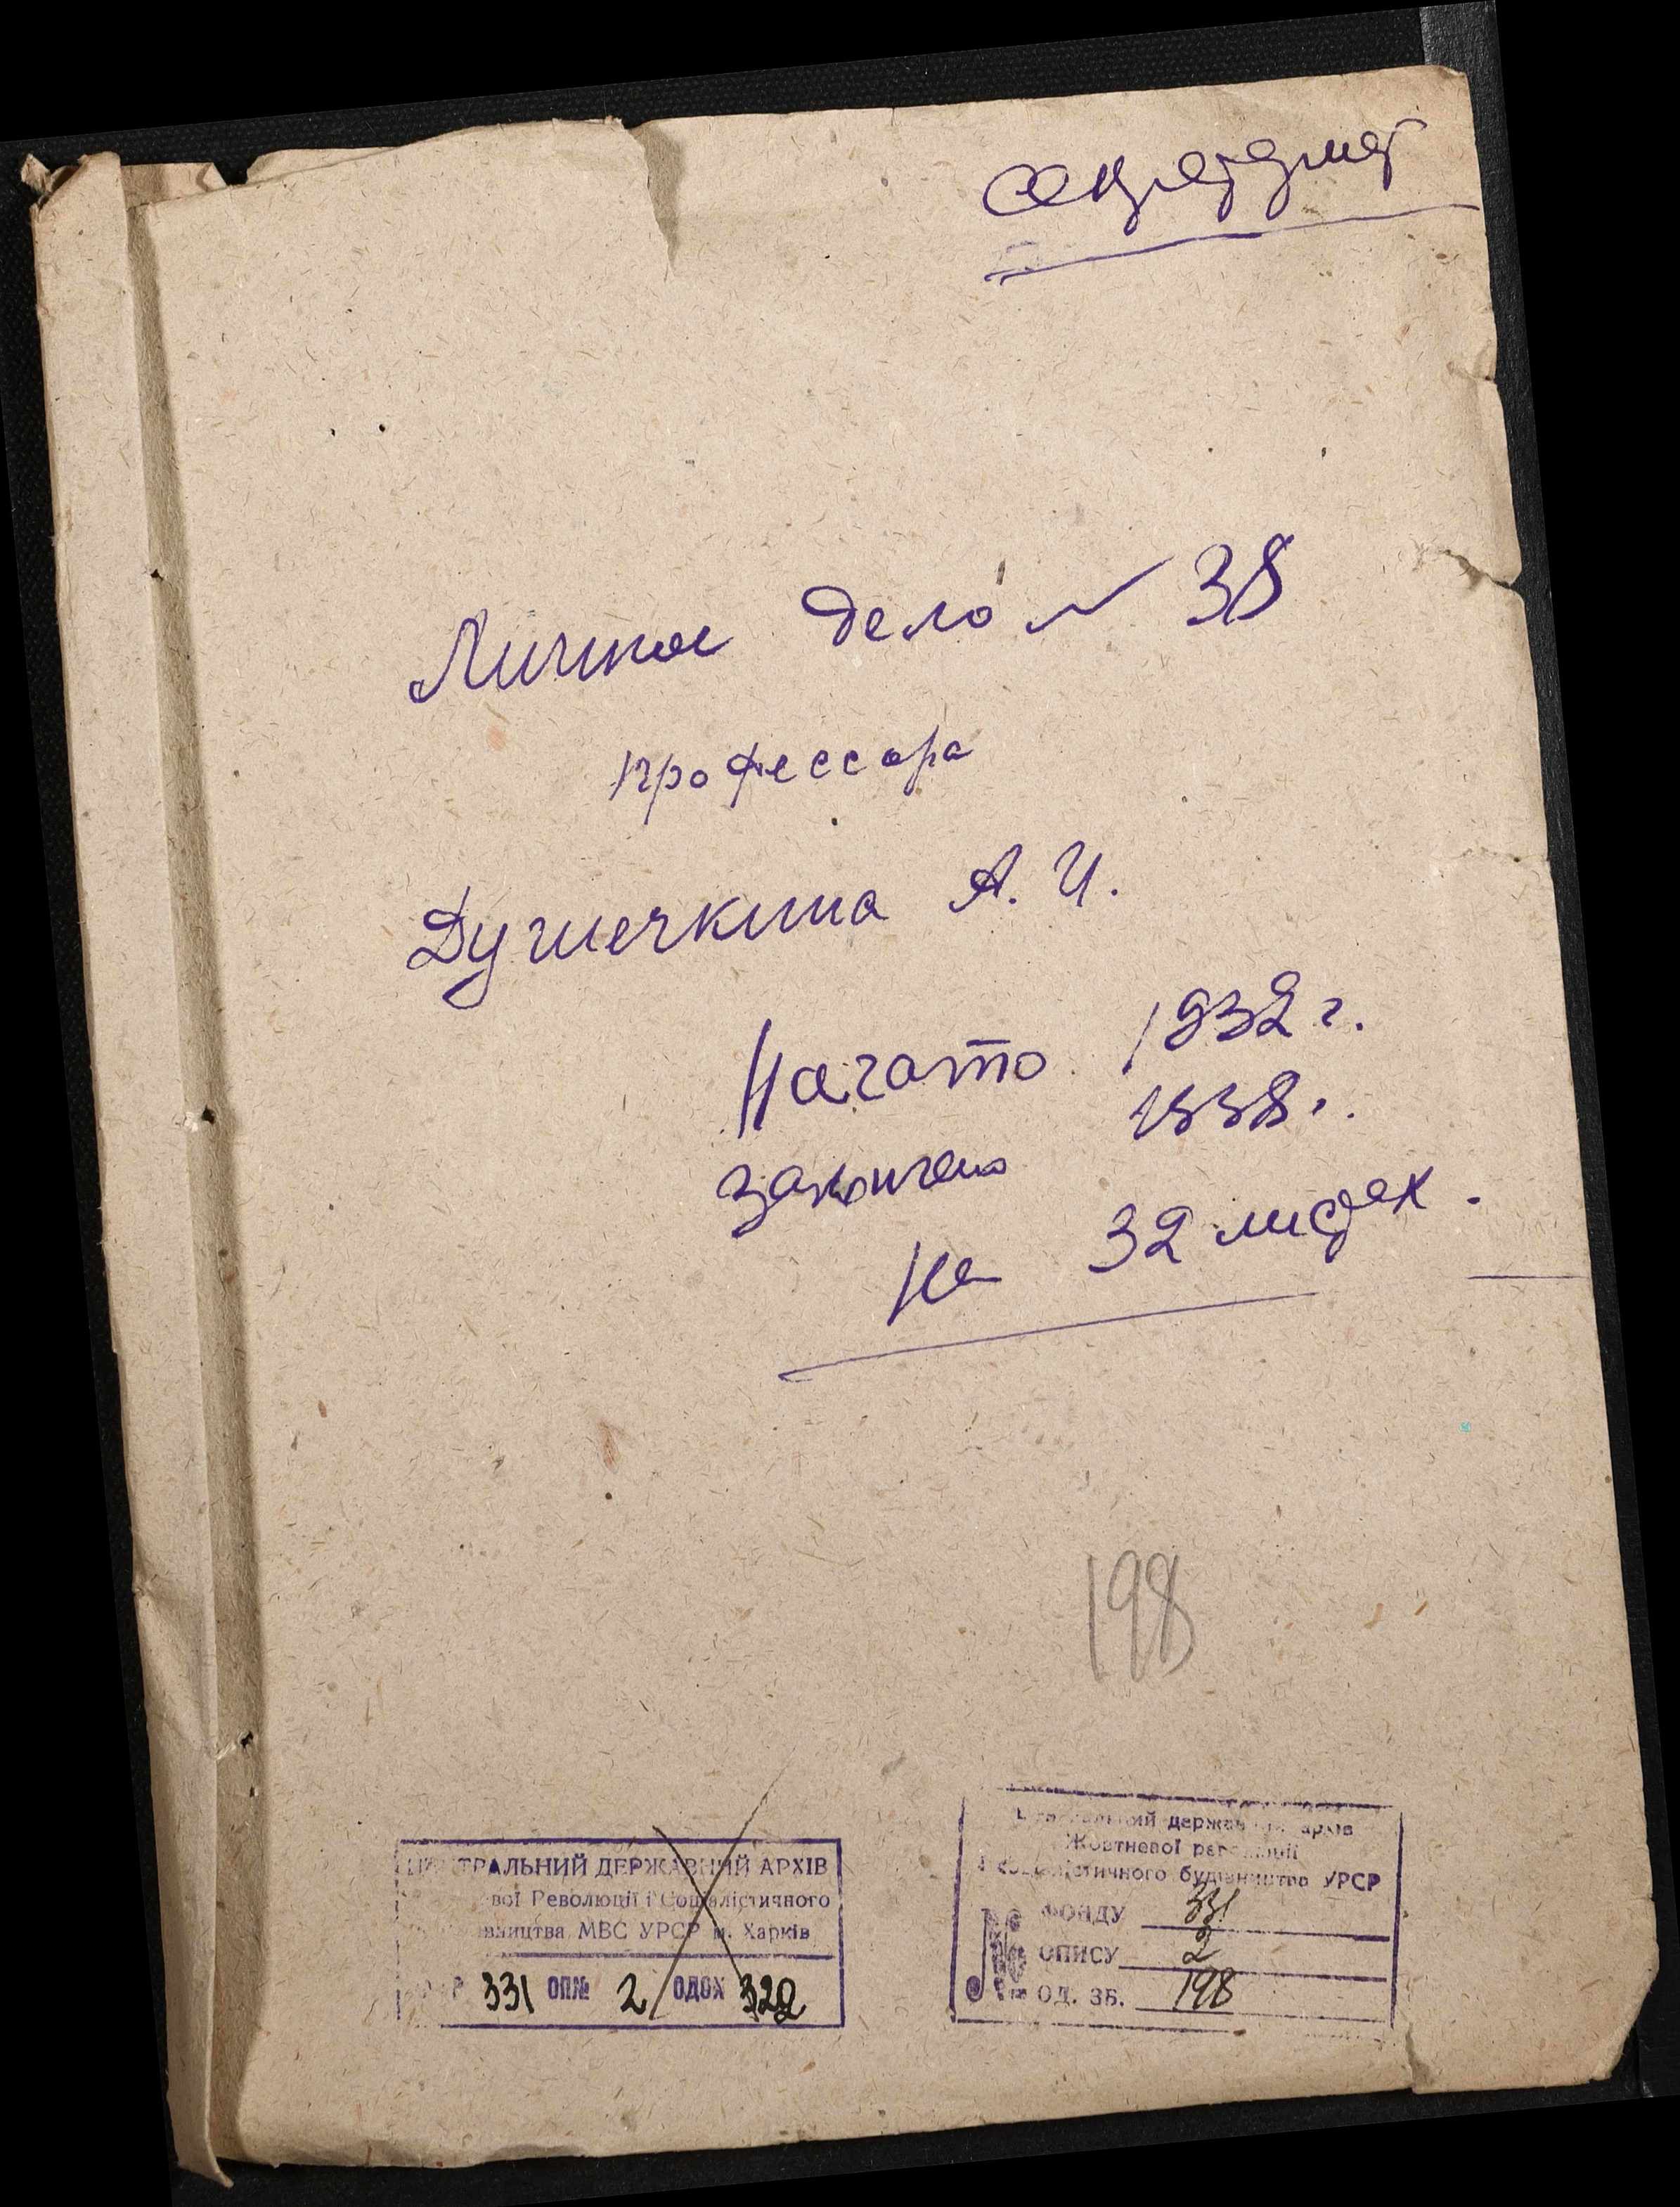 Личное дело № 38
профессора
Душечкина А. И.
Начато 1932 г.
закончено 1938 г.
На 32 листах.
198
ЦЕНТРАЛЬНИЙ ДЕРЖАВНИЙ АРХІВ
вої Революції і Соціалістичного
вництва МВС УРСР м. Харків
331 ОП№ 2 ОДОХ 322
Центральний державний архів
Жовтневої революції
і соціалістичного будівництва УРСР
№ ФОНДУ 331
ОПИСУ 2
ОД. ЗБ. 198